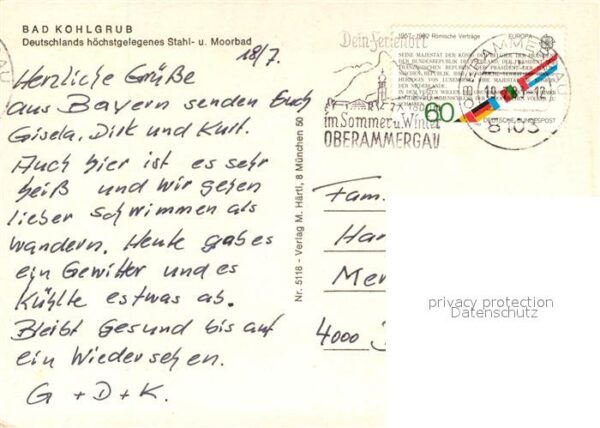 BAD KOHLGRUB
Deutschlands höchstgelegenes Stahl- u. Moorbad
18/7.
Herzliche Grüße
aus Bayern senden Euch
Gisela, Dirk und Kurt.
Auch hier ist es sehr
heiß und wir gehen
lieber schwimmen als
wandern. Heute gab es
ein Gewitter und es
kühlte estwas ab.
Bleibt Gesund bis auf
ein Wiedersehen.
G + D + K.
Nr. 5118 - Verlag M. Härtl, 8 München 50
Dein Ferienort
im Sommer u. Winter
OBERAMMERGAU
1957-1982 Römische Verträge
EUROPA
60
DEUTSCHE BUNDESPOST
OBERAMMERGAU
8103
Fam.
Han
Mer
4000
privacy protection
Datenschutz